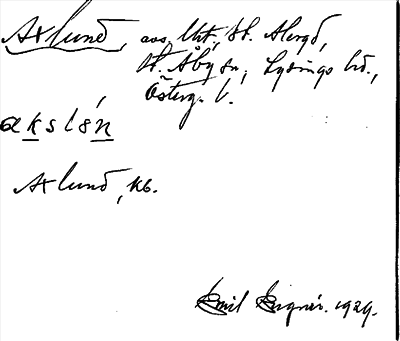 Axlund, avs, lht, St. Alergd,
V. Åby sn, Lysings hd.,
Österg. l.
akslén
Axlund, kb.
Emil Ingnér. 1929.